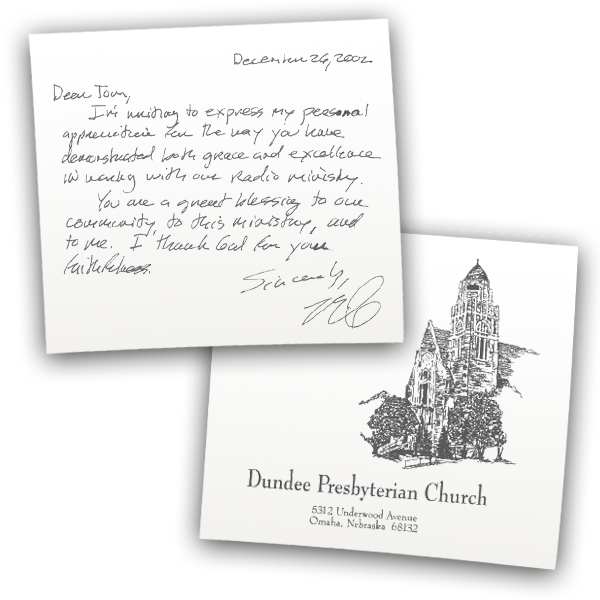 December 26, 2002
Dear Tom,
I'm writing to express my personal
appreciation for the way you have
demonstrated both grace and excellence
in working with our radio ministry.
You are a great blessing to our
community, to this ministry, and
to me. I thank God for your
faithfulness.
Sincerely,
Dundee Presbyterian Church
5312 Underwood Avenue
Omaha, Nebraska 68132